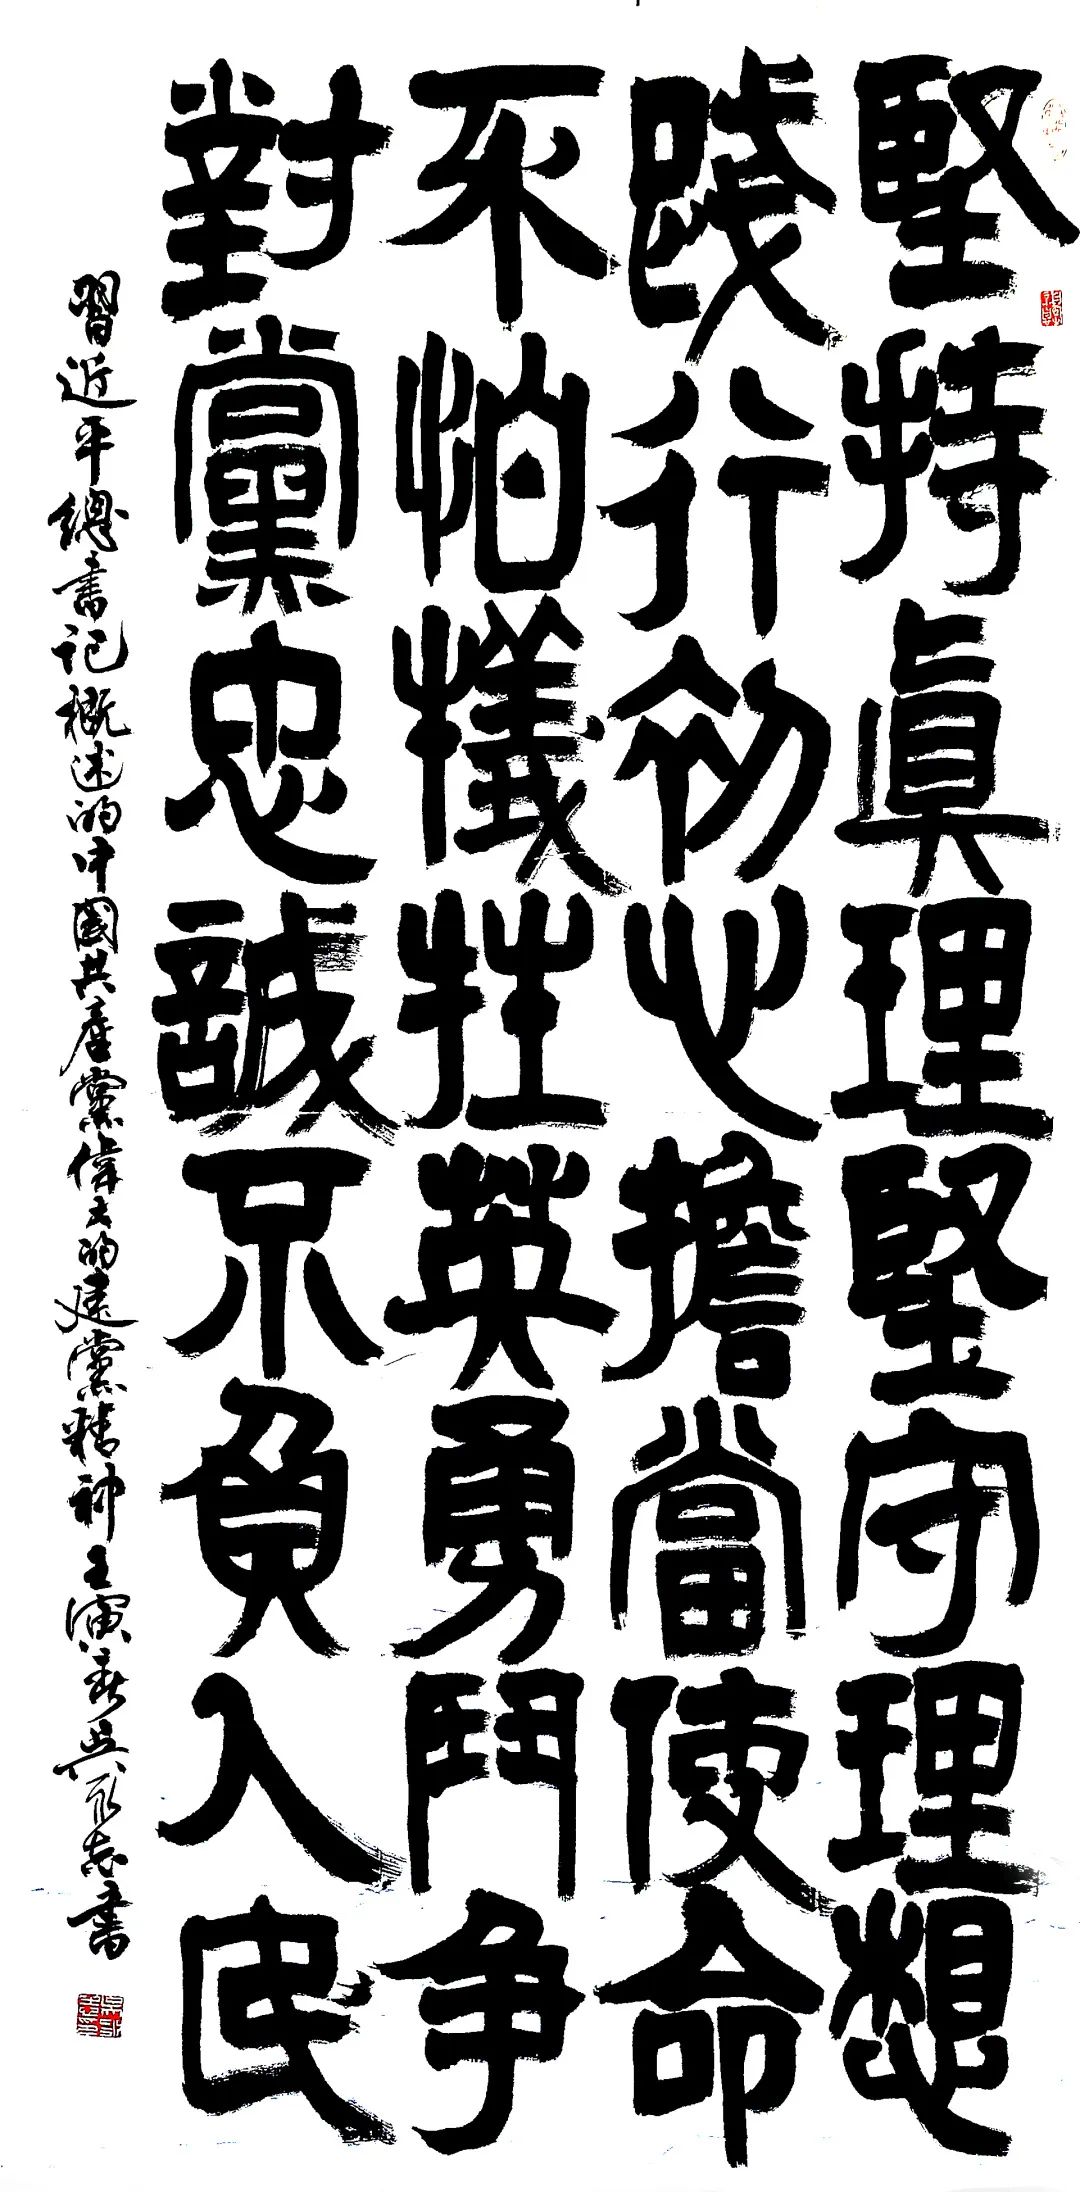 堅持真理堅守理想
踐行初心擔當使命
不怕犠牲英勇鬥争
對黨忠誠不負人民
習近平總書記概述的中國共産黨偉大的建黨精神 壬寅春吳永志書